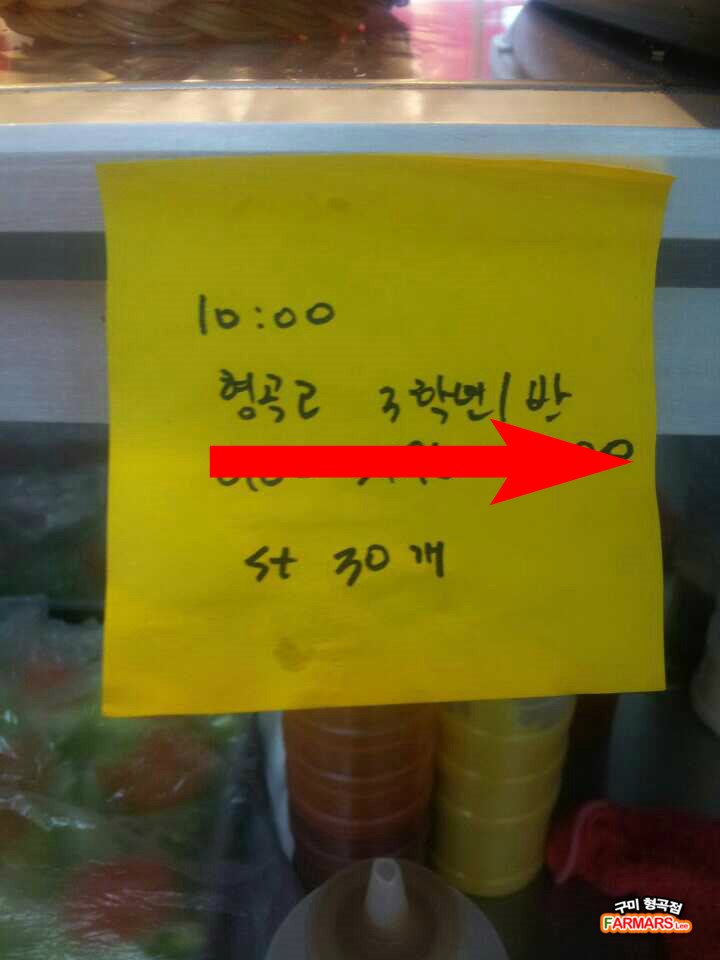 10:00
형곡고 3학년 1반
St 30개
구미 형곡점
FARMARS Lee